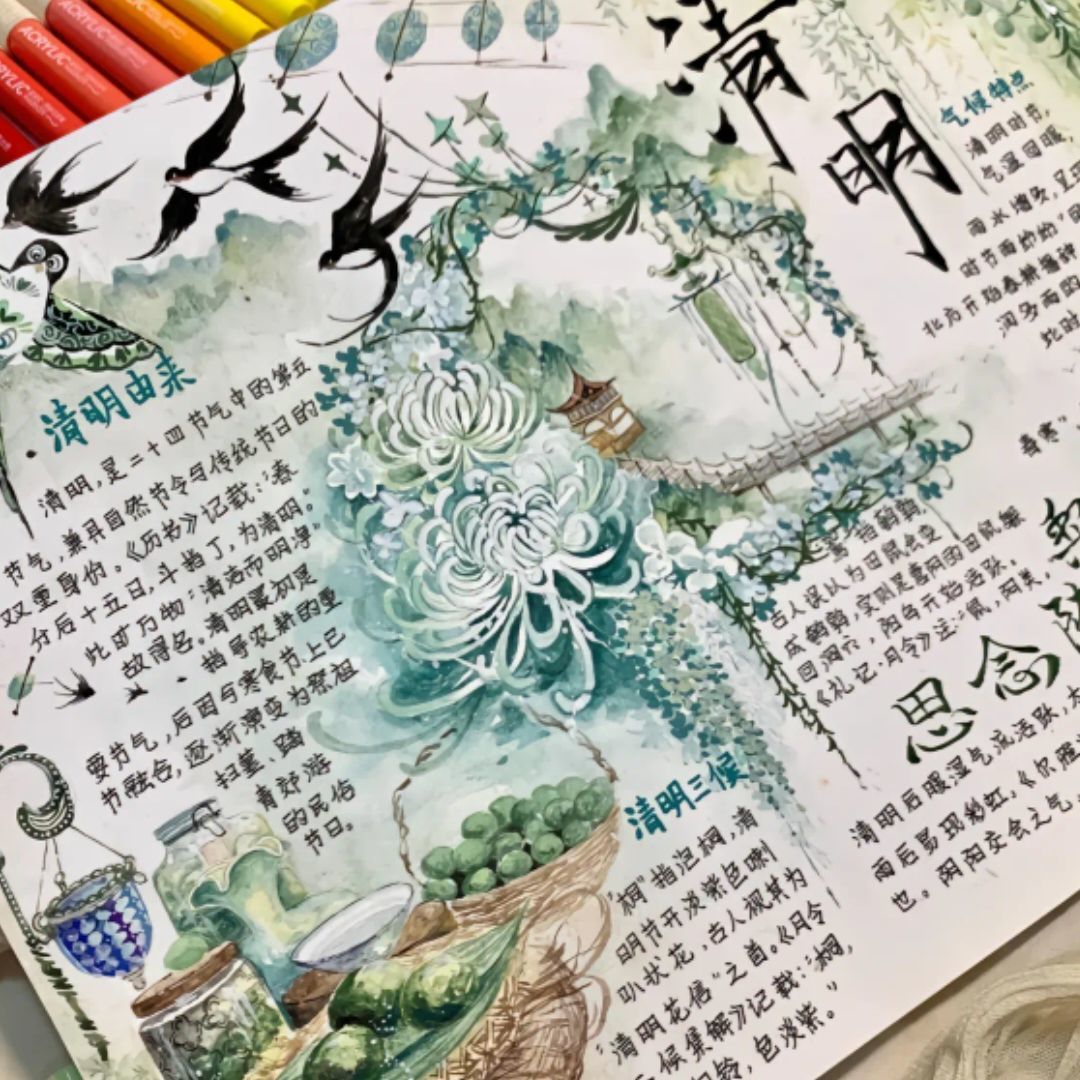 ACRYLIC
ACRYLIC
清明
气候特点
清明时节,
气温回暖,
雨水增多,
时节雨纷纷"
北方开始春耕播种
润多雨的
此时
春寒"
清明由来
清明,是二十四节气中的第五
节气,兼具自然节令与传统节日的
双重身份。《历书》记载:"春
分后十五日,斗指丁,为清明。
此时万物:清洁而明净,
故得名。清明最初是
指导农耕的重
要节气,后因与寒食节、上巳
节融合,逐渐演变为祭祖
扫墓、踏
青郊游
的民俗
节日。
古人误认为田鼠会变
成鹌鹑,实则是喜阴的田鼠躲
回洞穴,阳鸟开始活跃。
《礼记·月令》注:"鼠,阴类,
思念
清明后暖湿气流活跃,
雨后易现彩虹,《尔雅
也。阴阳交会之气,
清明三候
"桐"指泡桐,清
明节开淡紫色喇
叭状花,古人视其为
"清明花信"之首。《月令
候集解》记载:"桐,
如铃,色淡紫。"